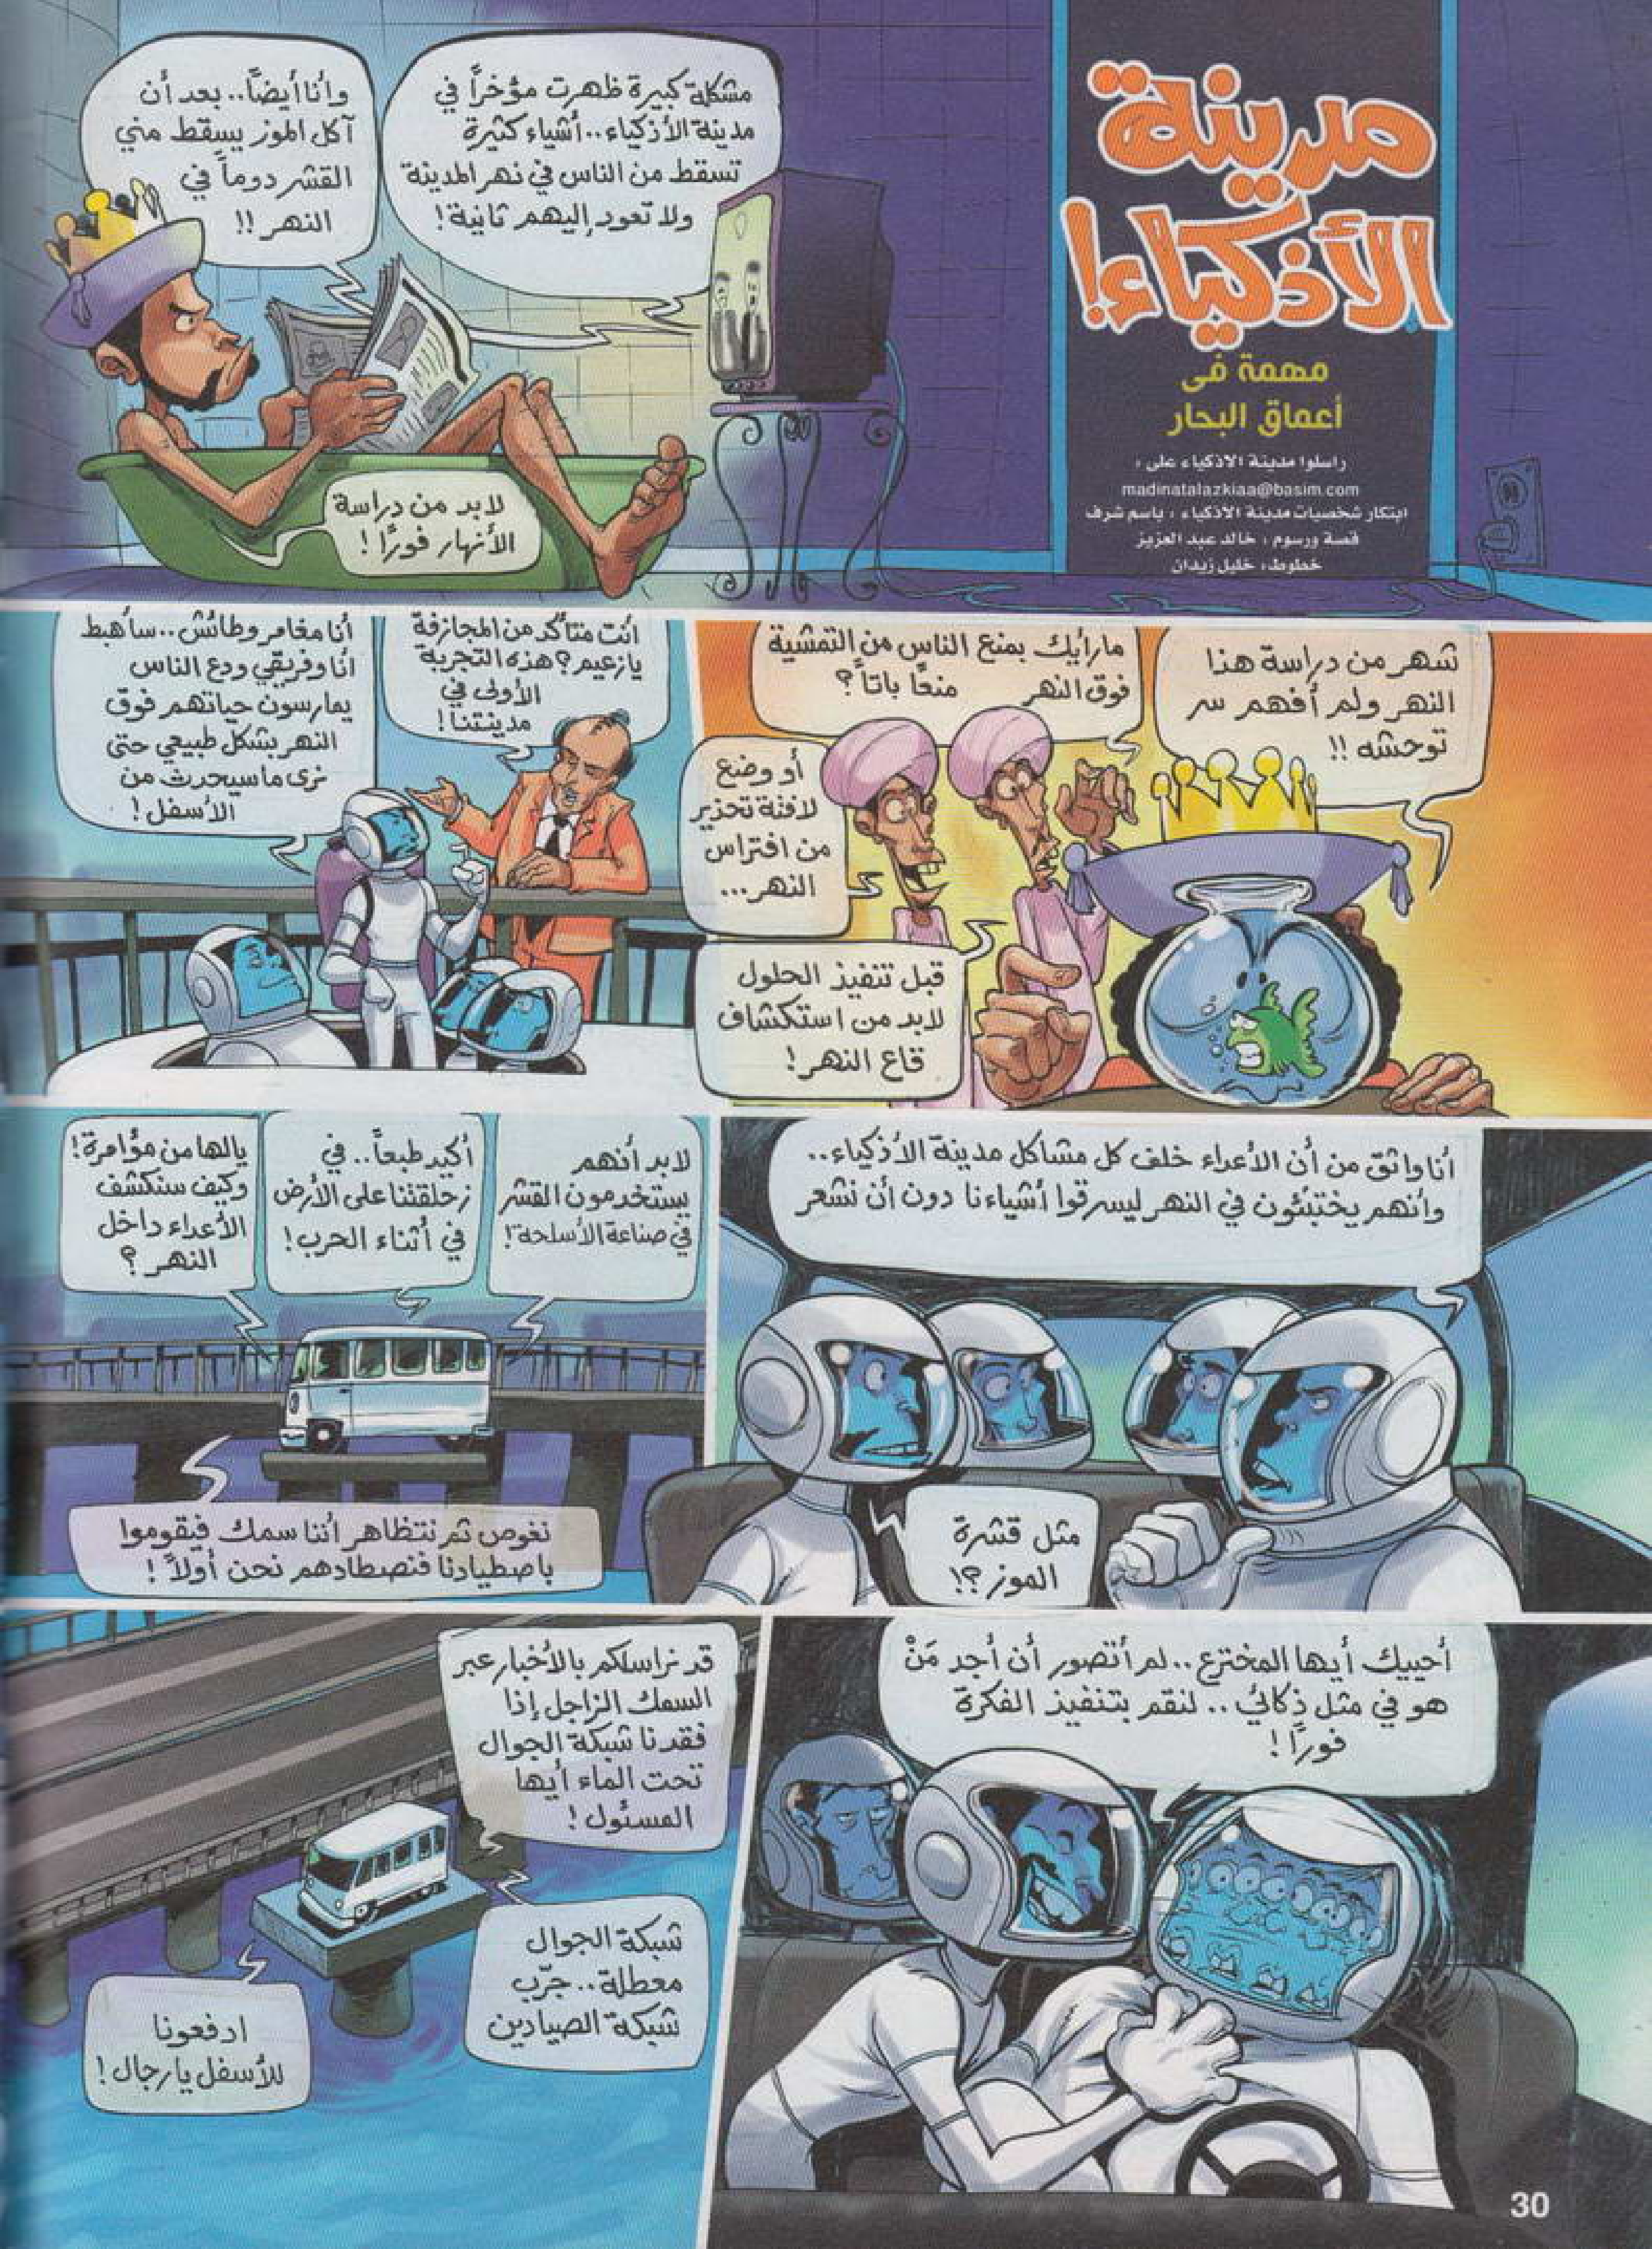 مدينة
الأذكياء!
مهمة فى
أعماق البحار
راسلوا مدينة الاذكياء على :
madinatalazkiaa@basim.com
ابتكار شخصيات مدينة الاذكياء : باسم شرف
قصة ورسوم : خالد عبد العزيز
خطوط : خليل زيدان
مشكلة كبيرة ظهرت مؤخراً في
مدينة الأذكياء.. أشياء كثيرة
تسقط من الناس في نهر المدينة
ولا تعود إليهم ثانية!
وأنا أيضًا.. بعد أن
آكل الموز يسقط مني
القشر دوماً في
النهر!!
لابد من دراسة
الأنهار فورًا!
شهر من دراسة هذا
النهر ولم أفهم سر
توحشه!!
مارأيك بمنع الناس من التمشية
فوق النهر منعًا باتاً؟
أو وضع
لافتة تحذير
من افتراس
النهر...
قبل تنفيذ الحلول
لابد من استكشاف
قاع النهر!
أنت متأكد من المجازفة
يازعيم؟ هذه التجربة
الأولى في
مدينتنا!
أنا مغامر وطائش.. سأهبط
أنا وفريقي ودع الناس
يمارسون حياتهم فوق
النهر بشكل طبيعي حتى
نرى ماسيحدث من
الأسفل!
أنا واثق من أن الأعداء خلف كل مشاكل مدينة الأذكياء..
وأنهم يختبئون في النهر ليسرقوا أشياءنا دون أن نشعر
مثل قشرة
الموز؟!
لابد أنهم
يستخدمون القشر
في صناعة الأسلحة!
أكيد طبعاً.. في
زحلقتنا على الأرض
في أثناء الحرب!
يالها من مؤامرة!
وكيف سنكشف
الأعداء داخل
النهر؟
نغوص ثم نتظاهر أننا سمك فيقوموا
باصطيادنا فنصطادهم نحن أولاً!
أحييك أيها المخترع.. لم أتصور أن أجد مَنْ
هو في مثل ذكائي.. لنقم بتنفيذ الفكرة
فورًا!
قد نراسلكم بالأخبار عبر
السمك الزاجل إذا
فقدنا شبكة الجوال
تحت الماء أيها
المسئول!
شبكة الجوال
معطلة.. جرّب
شبكة الصيادين
ادفعونا
للأسفل يارجال!
30